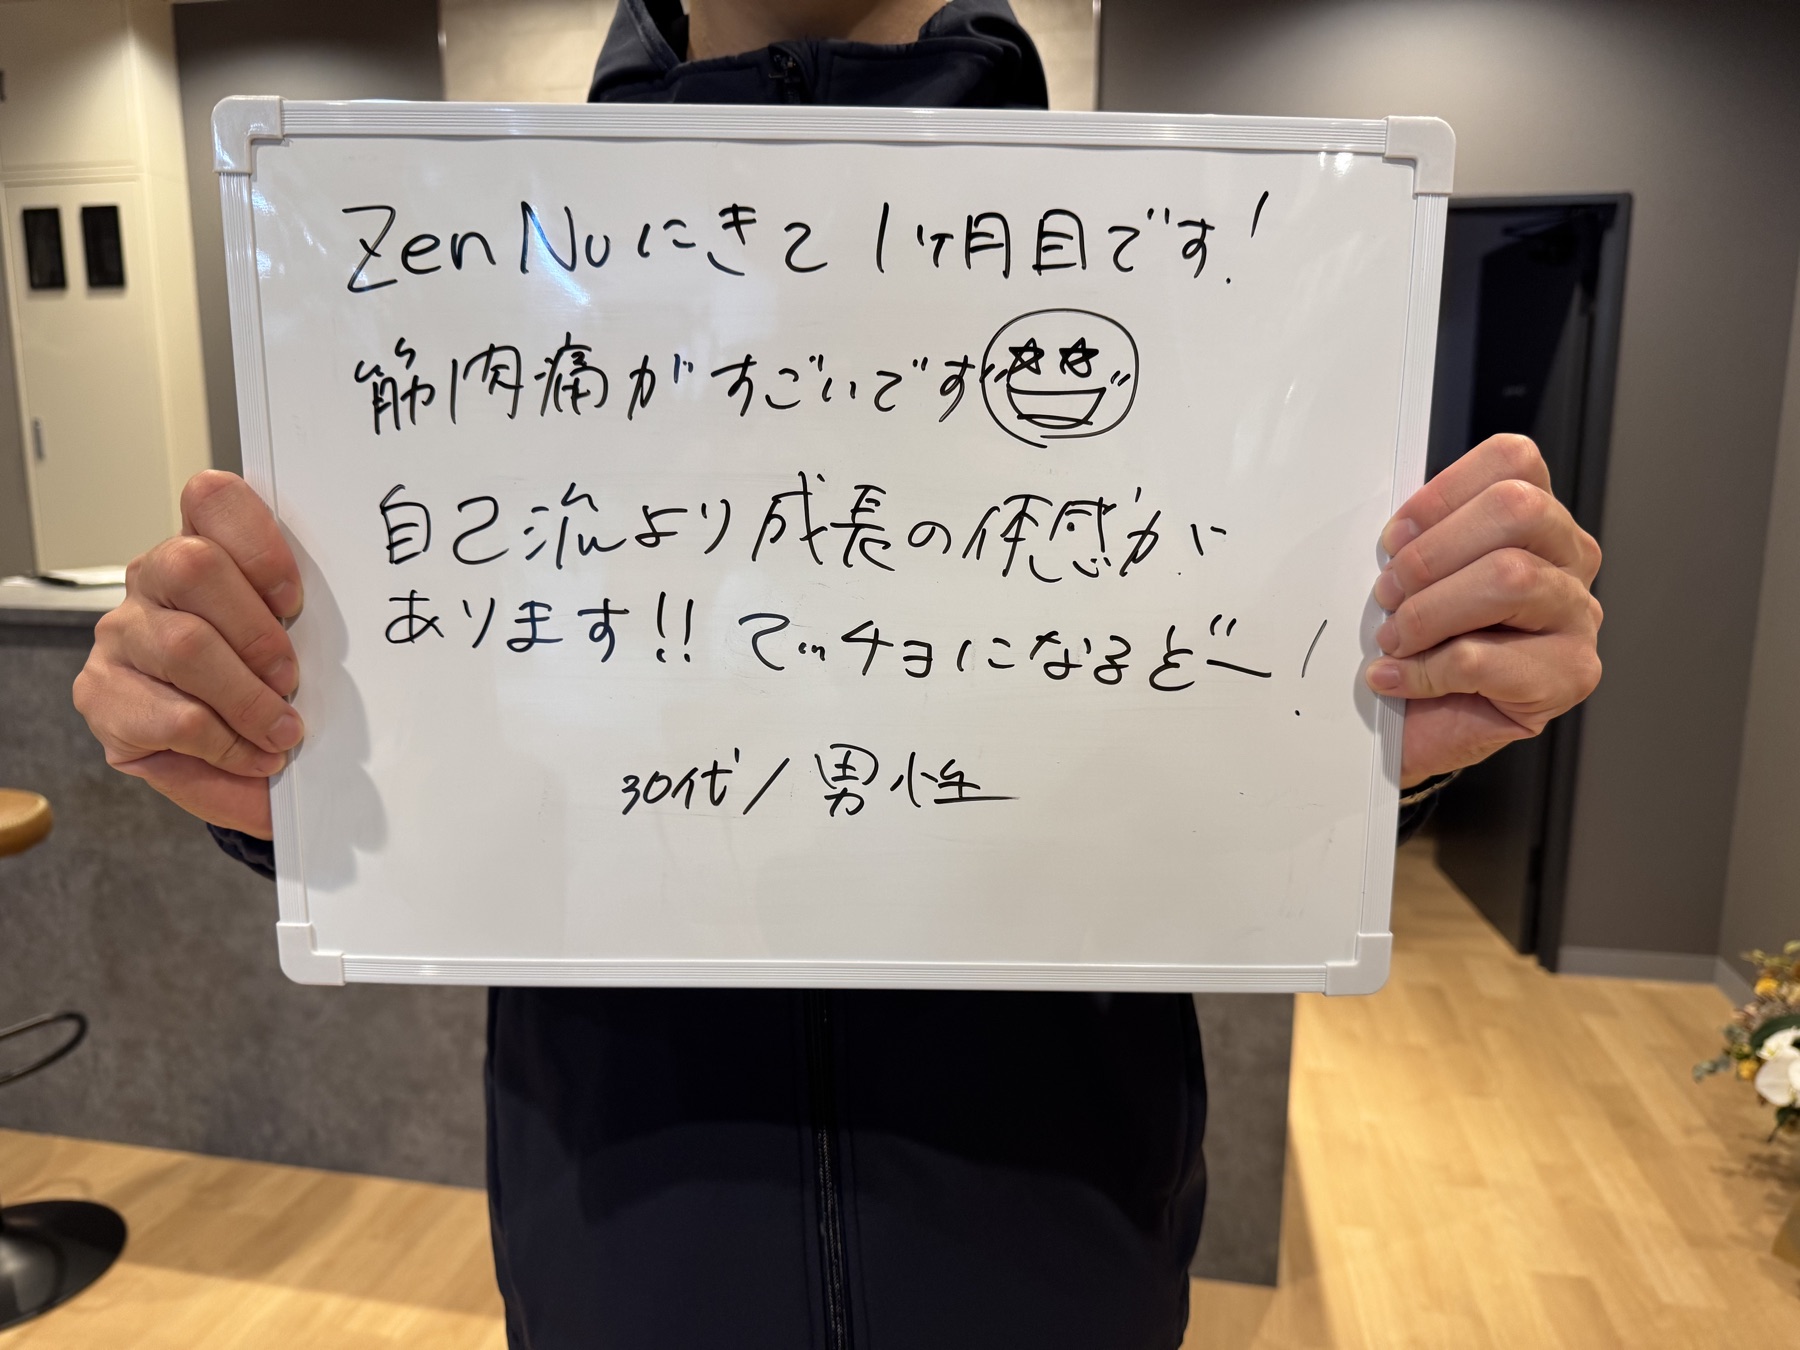 Zen Nuにきて1ヶ月目です!
筋肉痛がすごいです
自己流より成長の体感がに
あります!! マッチョになるどー!
30代/男性